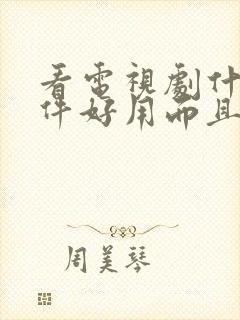 看電視劇什
件好用而且
周美琴